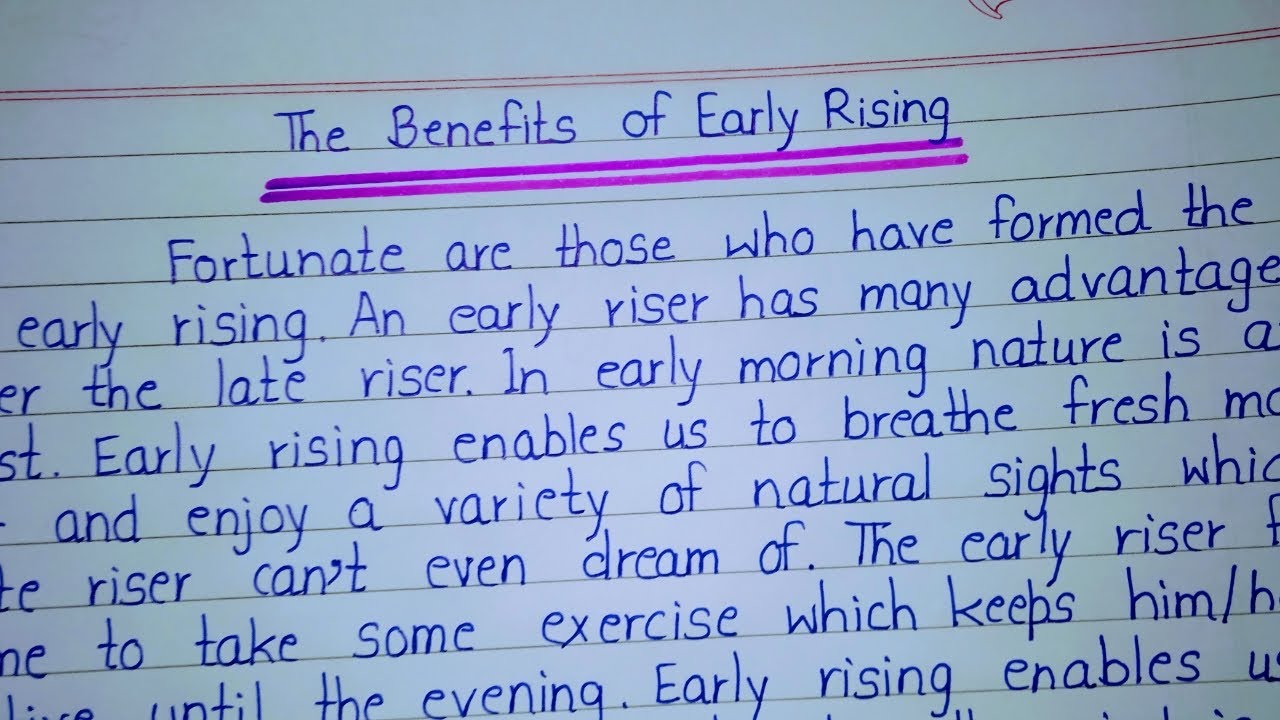 The Benefits of Early Rising
Fortunate are those who have formed the
early rising. An early riser has many advantage
er the late riser. In early morning nature is a
st. Early rising enables us to breathe fresh mo
and enjoy a variety of natural sights whic
te riser can't even dream of. The early riser f
me to take some exercise which keeps him/h
until the evening. Early rising enables us